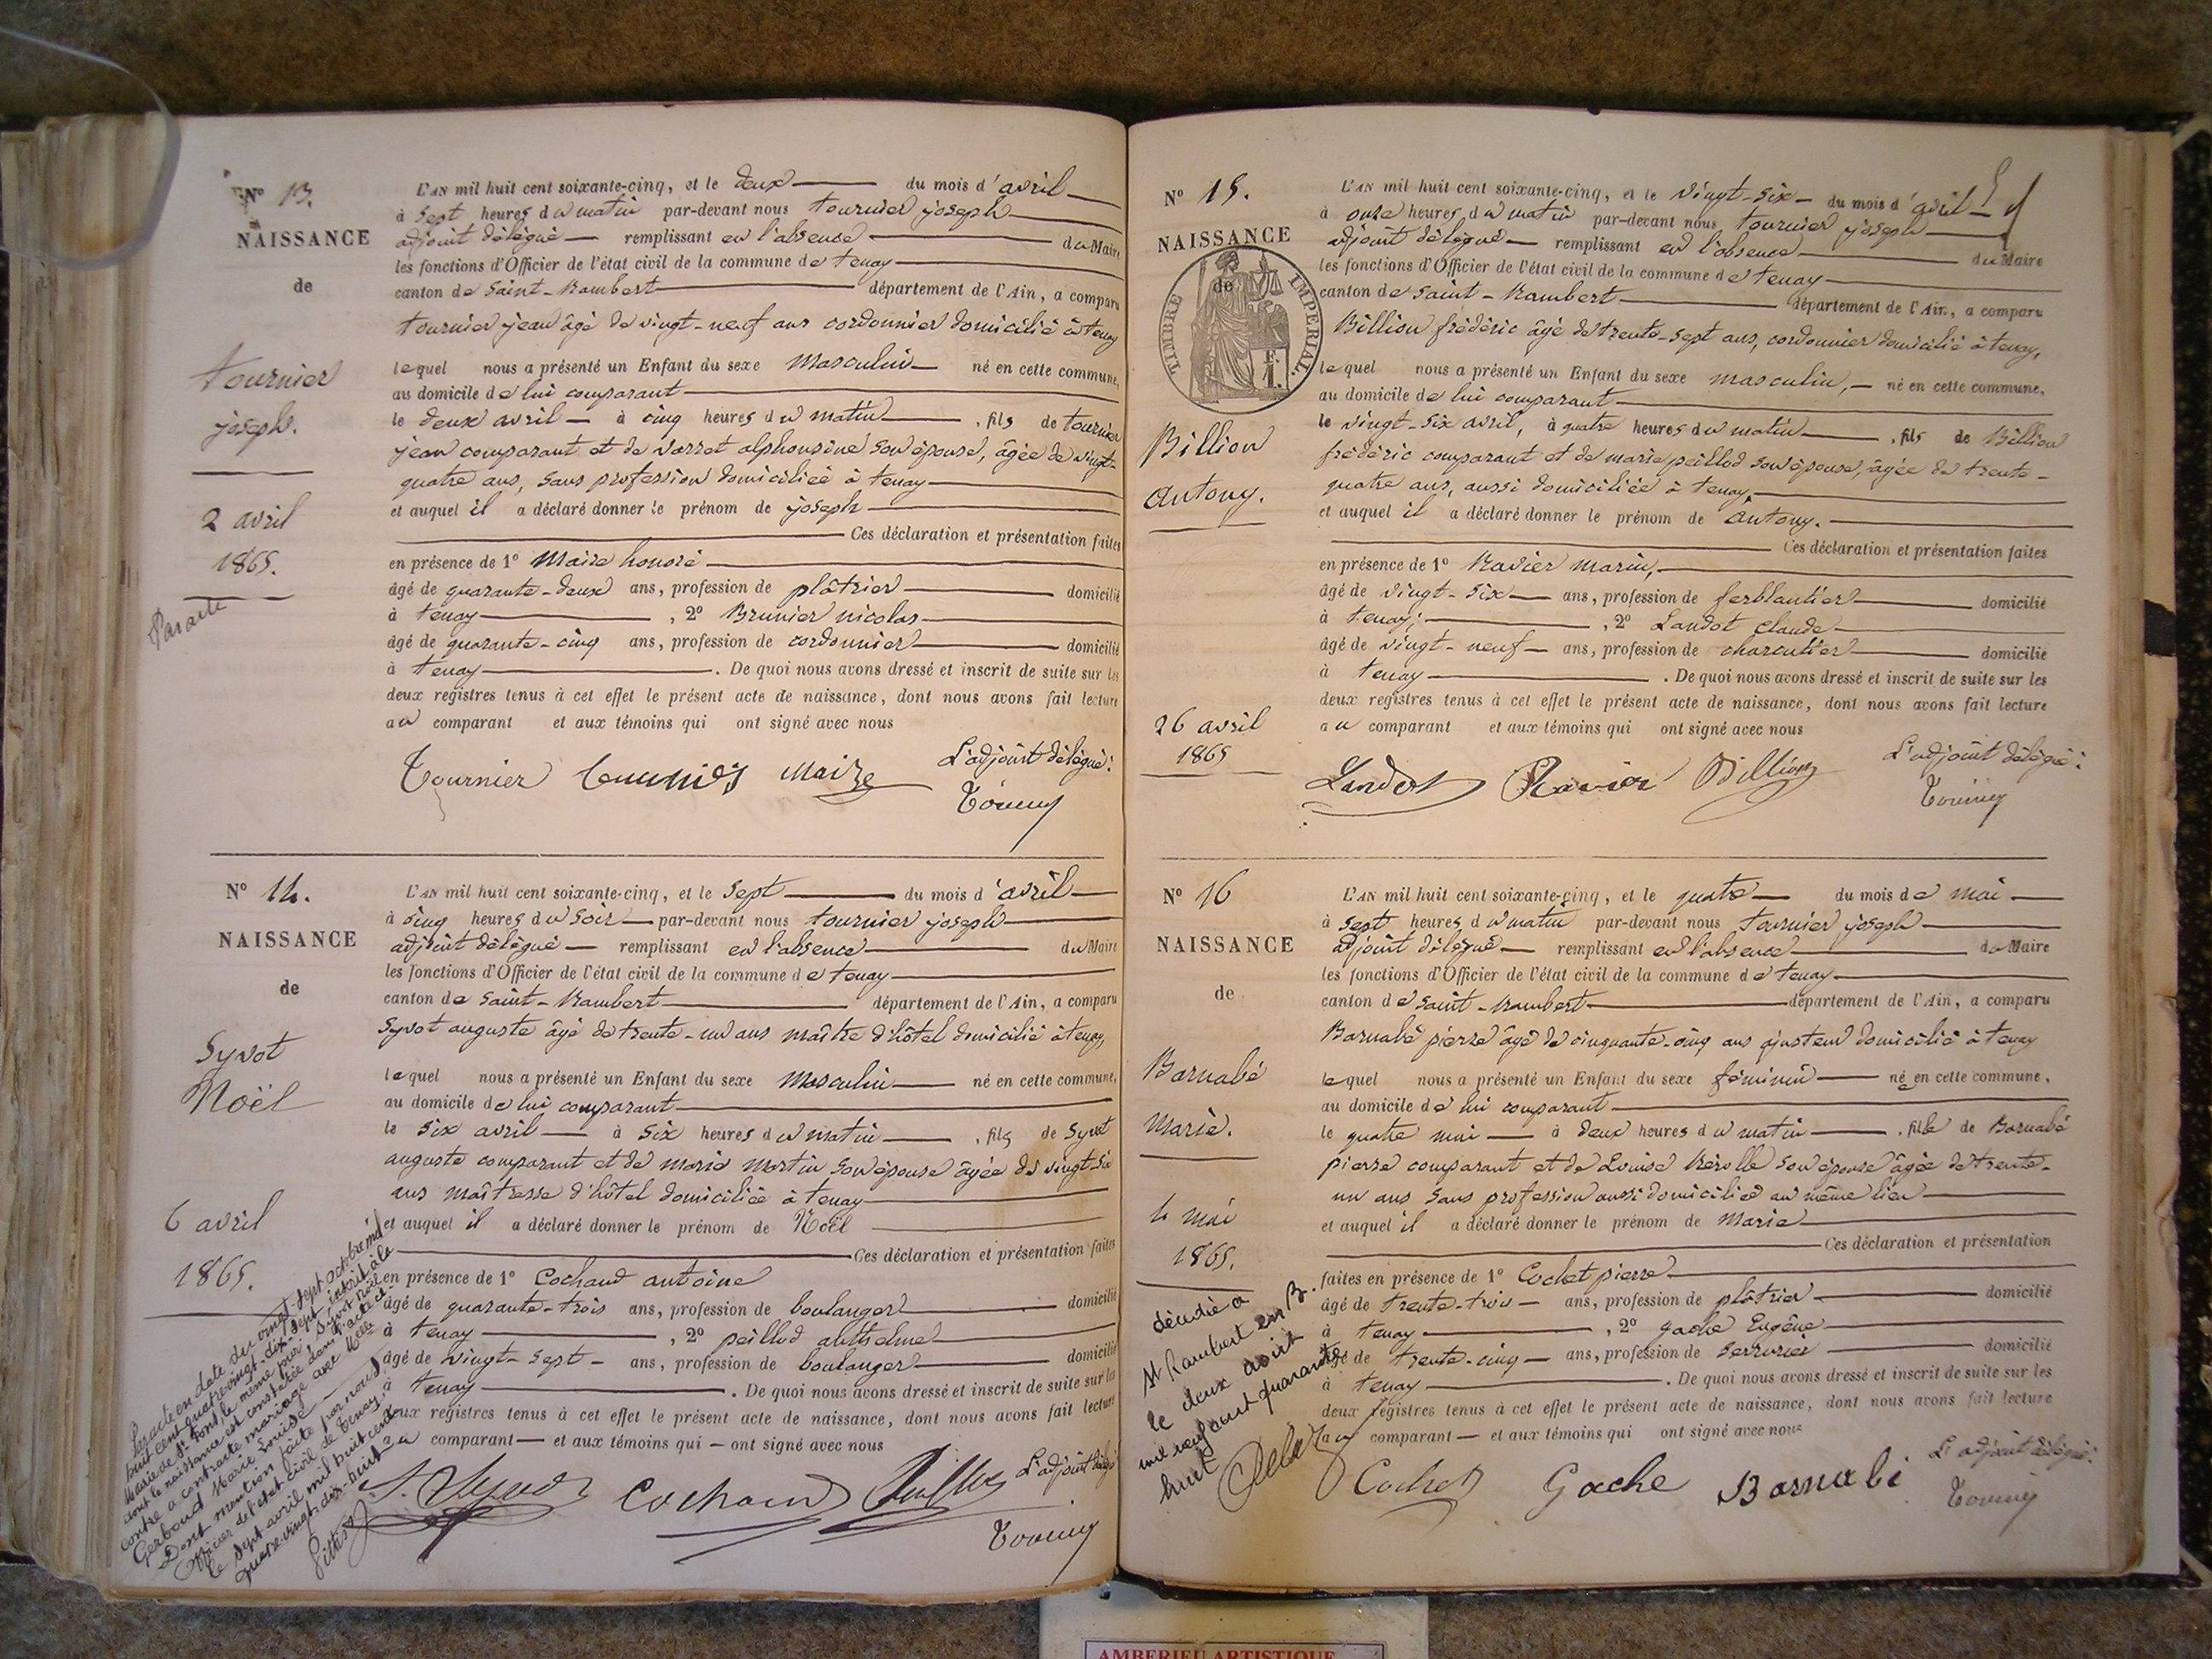 N° 13.
NAISSANCE
de
tournier
joseph.
2 avril
1865.
L'AN mil huit cent soixante-cinq, et le deux du mois d'avril
à sept heures du matin par-devant nous tournier joseph
adjoint délégué remplissant en l'absence du Maire
les fonctions d'Officier de l'état civil de la commune de tenay
canton de Saint-Rambert département de l'Ain, a comparu
tournier jean âgé de vingt-neuf ans cordonnier domicilié à tenay
lequel nous a présenté un Enfant du sexe Masculin né en cette commune,
au domicile de lui comparant
le deux avril à cinq heures du matin, fils de tournier
jean comparant et de alphonsine son épouse, âgée de vingt-
quatre ans, sans profession domiciliée à tenay
et auquel il a déclaré donner le prénom de joseph
Ces déclaration et présentation faites
en présence de 1° Maire honoré
âgé de quarante-deux ans, profession de plâtrier domicilié
à tenay, 2° Brunier nicolas
âgé de quarante-cinq ans, profession de cordonnier domicilié
à tenay. De quoi nous avons dressé et inscrit de suite sur les
deux registres tenus à cet effet le présent acte de naissance, dont nous avons fait lecture
au comparant et aux témoins qui ont signé avec nous
L'adjoint délégué:
Tournier Maire
N° 14.
NAISSANCE
de
Syvot
Noël
6 avril
1865.
L'AN mil huit cent soixante-cinq, et le Sept du mois d'avril
à cinq heures du soir par-devant nous tournier joseph
adjoint délégué remplissant en l'absence du Maire
les fonctions d'Officier de l'état civil de la commune de tenay
canton de Saint-Rambert département de l'Ain, a comparu
Syvot auguste âgé de trente-un ans maître d'hôtel domicilié à tenay,
lequel nous a présenté un Enfant du sexe Masculin né en cette commune,
au domicile de lui comparant
le Six avril à Six heures du matin, fils de Syvot
auguste comparant et de marie martin son épouse âgée de vingt-six
ans maîtresse d'hôtel domiciliée à tenay
et auquel il a déclaré donner le prénom de Noël
Ces déclaration et présentation faites
en présence de 1° Cochand antoine
âgé de quarante-trois ans, profession de boulanger domicilié
à tenay, 2° peillod anthelme
âgé de vingt-sept ans, profession de boulanger domicilié
à tenay. De quoi nous avons dressé et inscrit de suite sur les
deux registres tenus à cet effet le présent acte de naissance, dont nous avons fait lecture
au comparant et aux témoins qui ont signé avec nous
L'adjoint délégué
Cochand
Par acte en date du vingt-sept octobre mil
huit cent quatre vingt-dix-sept inscrit à la
Mairie de St le même jour Syvot Noël
dont la naissance est constatée dans l'acte ci
contre a contracté mariage avec Melle
Gerboud Marie Louise
Dont mention faite par nous
Officier de l'état civil de Tenay,
le sept avril mil huit cent
quatre-vingt-dix-huit
N° 15.
NAISSANCE
de
TIMBRE IMPERIAL.
1 F.
Billion
Antony.
26 avril
1865
L'AN mil huit cent soixante-cinq, et le vingt-six du mois d'avril
à onze heures du matin par-devant nous tournier joseph
adjoint délégué remplissant en l'absence du Maire
les fonctions d'Officier de l'état civil de la commune de tenay
canton de saint-Rambert département de l'Ain, a comparu
Billion frédéric âgé de trente-sept ans, cordonnier domicilié à tenay,
lequel nous a présenté un Enfant du sexe masculin, né en cette commune,
au domicile de lui comparant
le vingt-six avril, à quatre heures du matin, fils de Billion
frédéric comparant et de marie peillod son épouse, âgée de trente-
quatre ans, aussi domiciliée à tenay,
et auquel il a déclaré donner le prénom de Antony.
Ces déclaration et présentation faites
en présence de 1° Ravier marin,
âgé de vingt-six ans, profession de ferblantier domicilié
à tenay; , 2° Landot Claude
âgé de vingt-neuf ans, profession de charcutier domicilié
à tenay. De quoi nous avons dressé et inscrit de suite sur les
deux registres tenus à cet effet le présent acte de naissance, dont nous avons fait lecture
au comparant et aux témoins qui ont signé avec nous
L'adjoint délégué:
Landot Ravier Billion
N° 16
NAISSANCE
de
Barnabé
Marie.
4 mai
1865.
L'AN mil huit cent soixante-cinq, et le quatre du mois de mai
à sept heures du matin par-devant nous tournier joseph
adjoint délégué remplissant en l'absence du Maire
les fonctions d'Officier de l'état civil de la commune de tenay
canton de saint-rambert département de l'Ain, a comparu
Barnabé pierre âgé de cinquante-cinq ans ajusteur domicilié à tenay
lequel nous a présenté un Enfant du sexe féminin né en cette commune,
au domicile de lui comparant
le quatre mai à deux heures du matin, fille de Barnabé
pierre comparant et de Louise son épouse âgée de trente-
un ans sans profession aussi domiciliée au même lieu
et auquel il a déclaré donner le prénom de Marie
Ces déclaration et présentation
faites en présence de 1° Cochet pierre
âgé de trente-trois ans, profession de plâtrier domicilié
à tenay, 2° gache Eugène
âgé de trente-cinq ans, profession de serrurier domicilié
à tenay. De quoi nous avons dressé et inscrit de suite sur les
deux registres tenus à cet effet le présent acte de naissance, dont nous avons fait lecture
au comparant et aux témoins qui ont signé avec nous
L'adjoint délégué:
Cochet Gache Barnabé
décédée à
St Rambert en B.
le deux août
mil neuf cent quarante
huit
AMBERIEU ARTISTIQUE